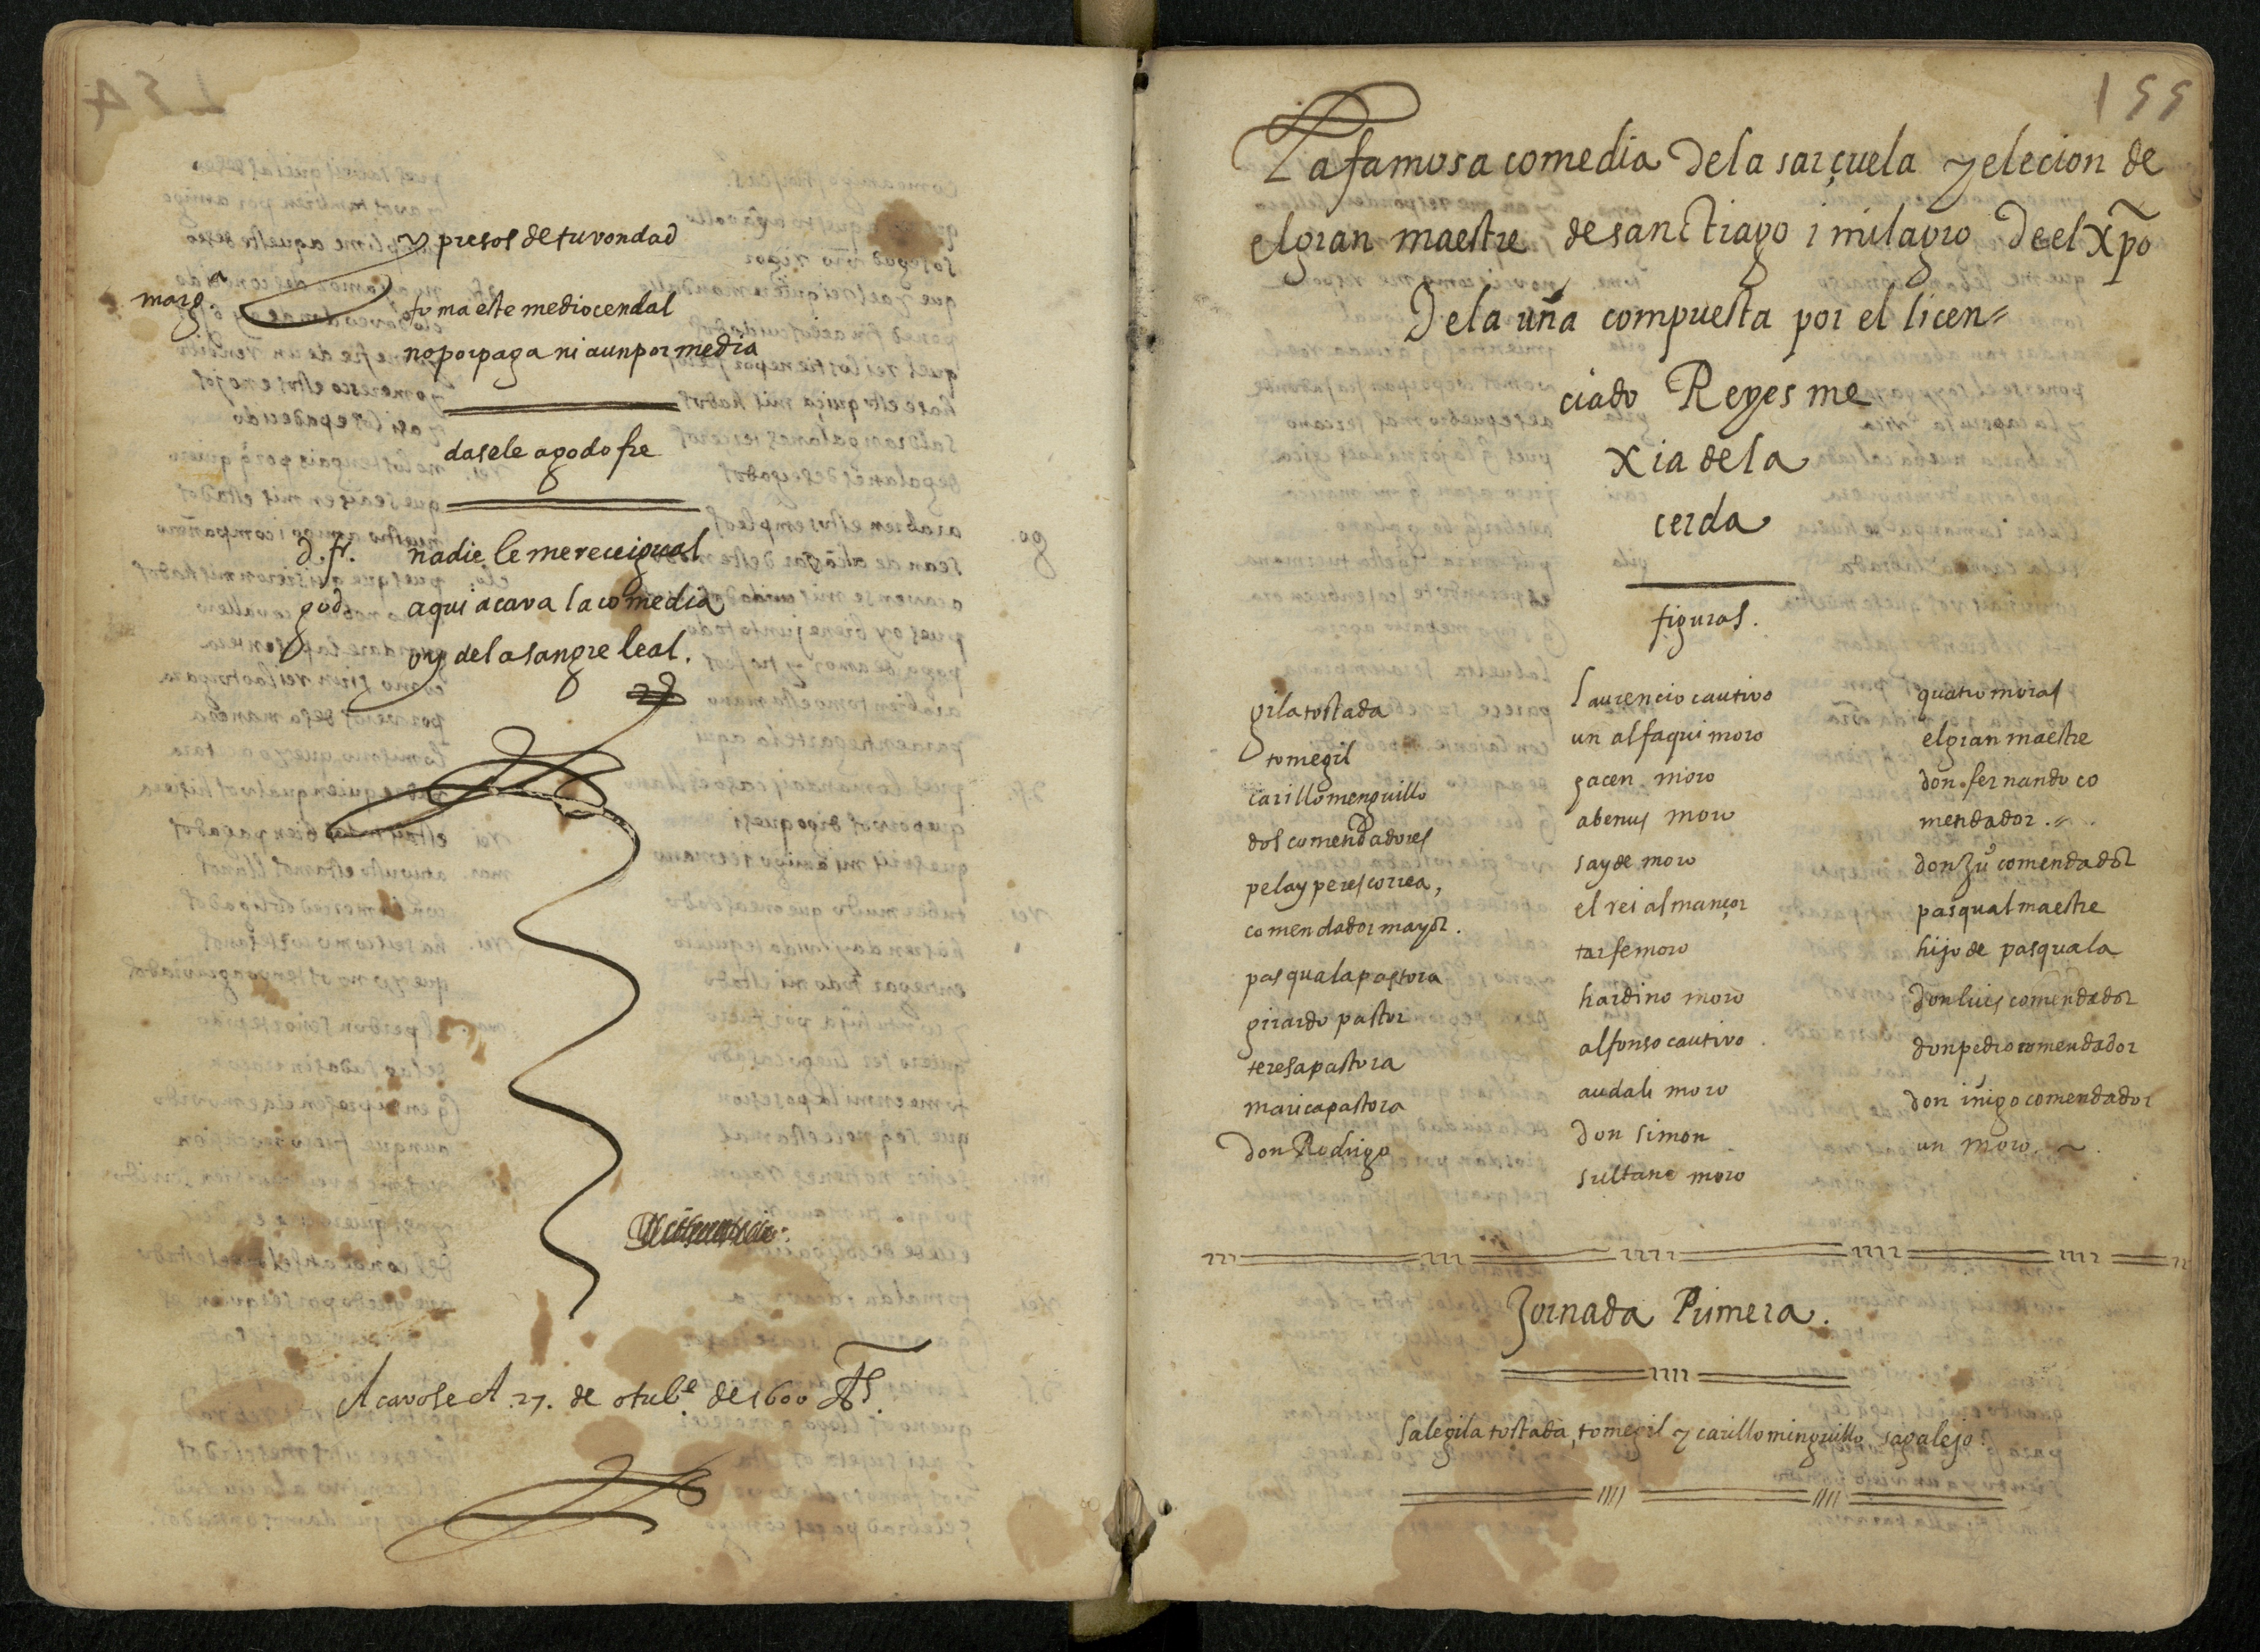 y presos de tu vondad
marg.ª toma este medio cendal
no por paga ni aun por media
dasele a godofre
d. fr. nadie le merece igual
god. aqui acava la comedia
oy de la sangre leal.
Acavose A .27. de otub.e de 1600 As.
155
La famosa comedia dela sarçuela y elecion de
el gran maestre de sanctiago i milagro de el Xp̃o
Dela uña compuesta por el licen=
ciado Reyes me
xia de la
cerda
figuras.
gila tostada
tomegil
carillo menguillo
dos comendadores
pelay peres correa,
comendador mayor.
pasquala pastora
girardo pastor
teresa pastora
marica pastora
Don Rodrigo
laurencio cautivo
un alfaqui moro
gacen moro
abenus moro
sayde moro
el rei almançor
tarfe moro
hardino moro
alfonso cautivo
audali moro
Don simon
sultano moro
quatro moras
el gran maestre
don fernando co
mendador.
don Ju° comendador
pasqual maestre
hijo de pasquala
don luis comendador
don pedro comendador
don iñigo comendador
un moro.
Jornada Primera.
Sale gila tostada, tomegil y carillo minguillo sagalejo.